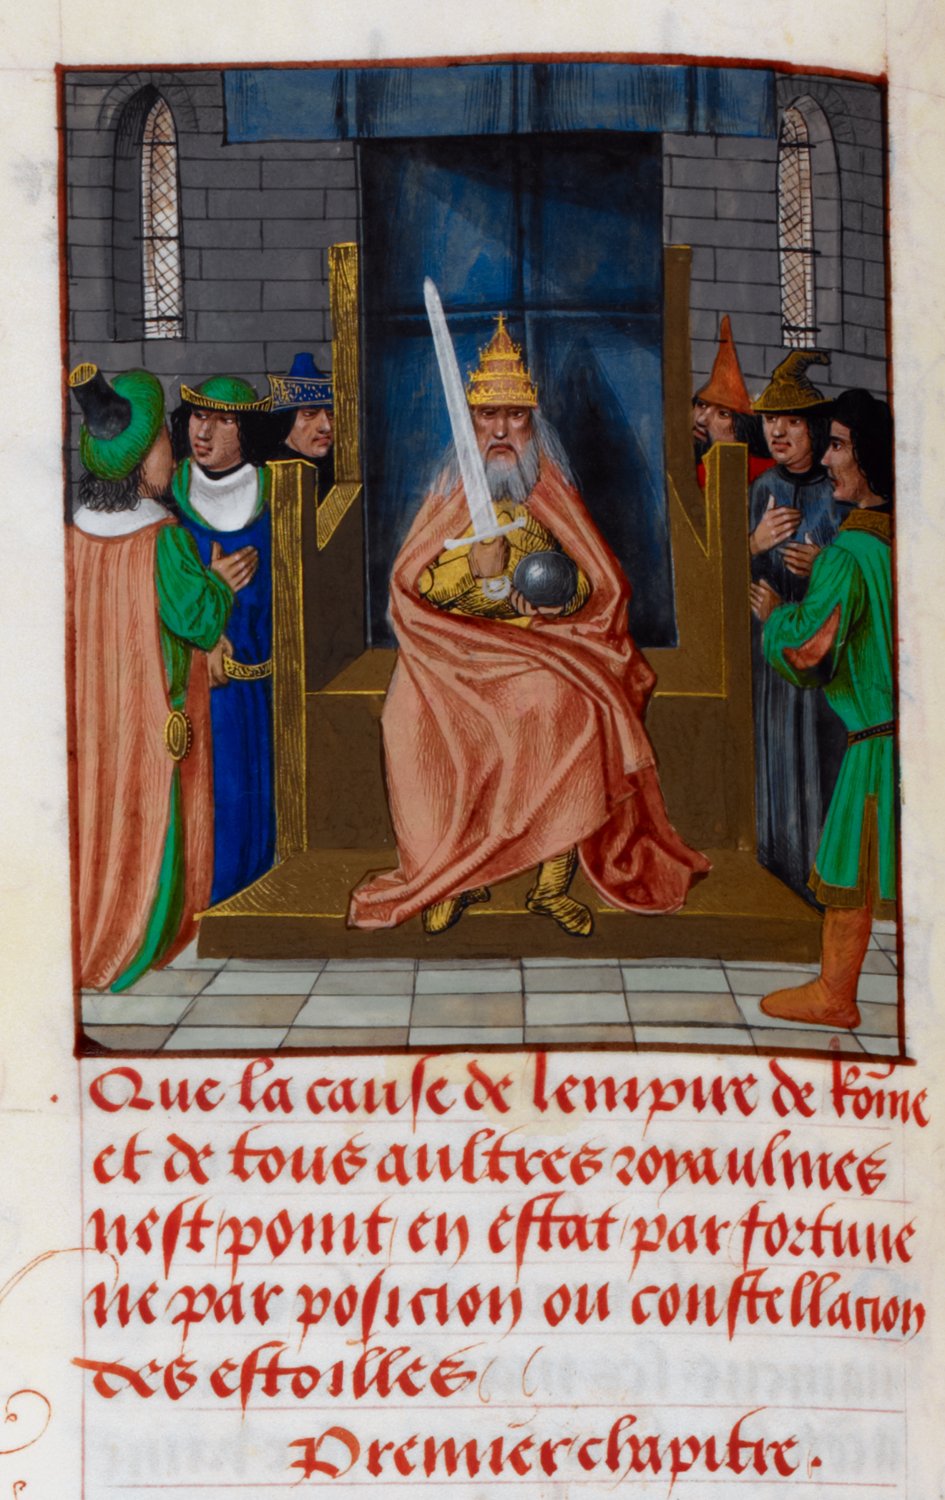 Que la cause de lempire de Ro͞me
et de tous aultres royaulmes
nest point en estat par fortune
ne par posicion ou constellacion
des estoilles
Premier chapitre.